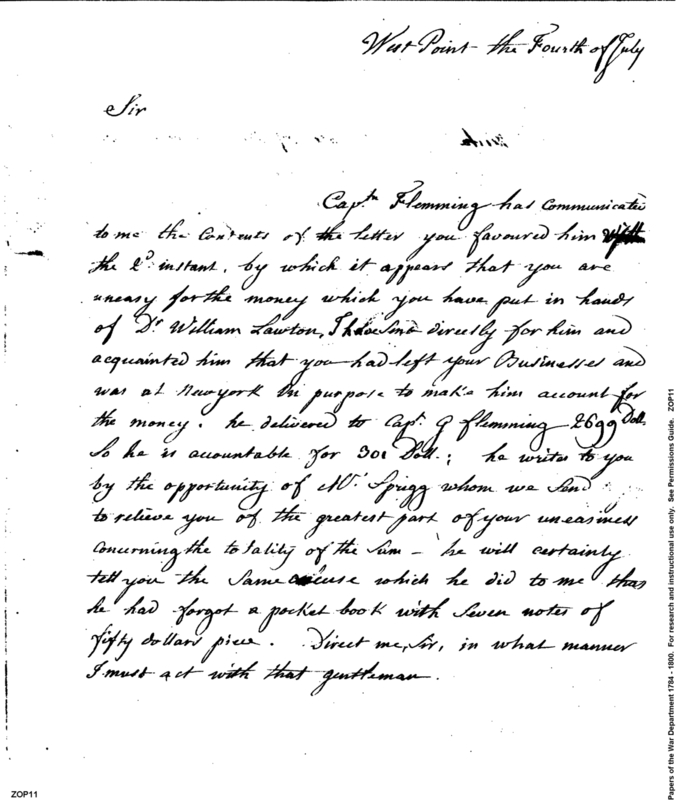 West Point the Fourth of July
Sir
Capt.n Flemming has Communicated
to me the Contents of the letter you favoured him
the 2.d instant, by which it appears that you are
uneasy for the money which you have put in hands
of D.r William Lawton, I have Send directly for him and
acquainted him that you had left your Businesses and
was at Newyork in purpose to make him account for
the money. he delivered to Cap.t G flemming 2699 Doll.
So he is accountable for 301 Doll.; he writes to you
by the opportunity of M.r Sprigg whom we Send
to relieve you of the greatest part of your uneasiness
concerning the totality of the Sum – he will certainly
tell you the Same excuse which he did to me that
he had forgot a pocket book with Seven notes of
fifty dollars piece. Direct me, Sir, in what manner
I must act with that gentleman.
Papers of the War Department 1784 - 1800. For research and instructional use only. See Permissions Guide. ZOP11
ZOP11